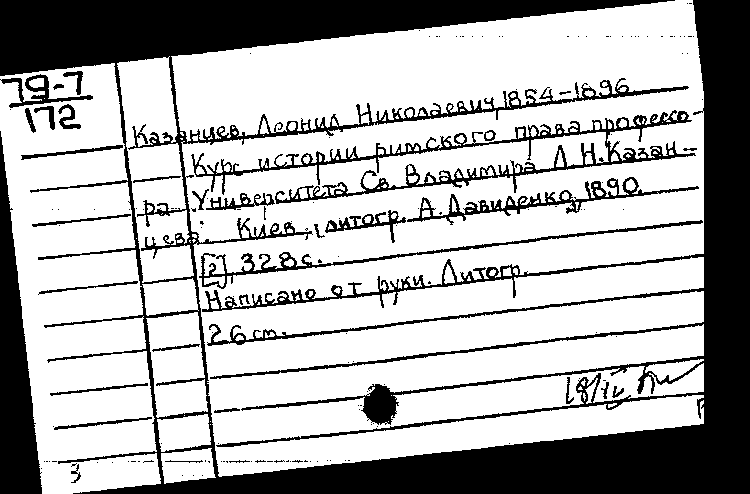 79-7
172
Казанцев, Леонид Николаевич, 1854-1896
Курс истории римского права профессо-
ра Университета Св. Владимира Л.Н. Казан-
цева. Киев, литогр. А. Давиденко, 1890.
[2], 328 с.
Написано от руки. Литогр.
26 см.
18/IV
3